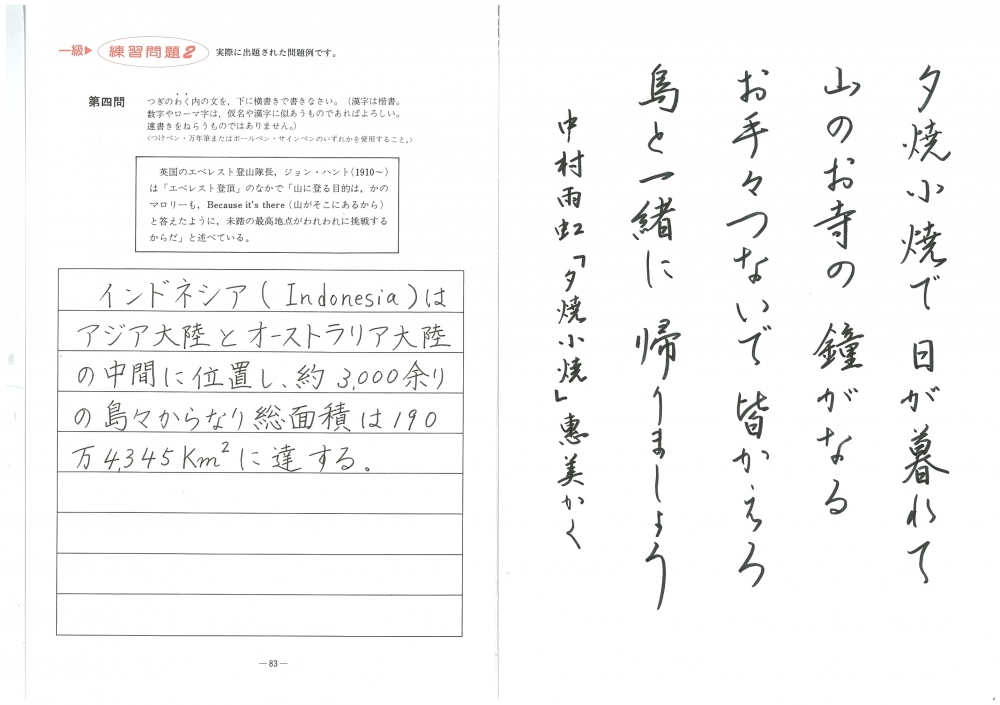 一級▶ 練習問題2 実際に出題された問題例です。
第四問 つぎのわく内の文を，下に横書きで書きなさい。（漢字は楷書。
数字やローマ字は，仮名や漢字に似あうものであればよろしい。
速書きをねらうものではありません。）
〈つけペン・万年筆またはボールペン・サインペンのいずれかを使用すること。〉
英国のエベレスト登山隊長，ジョン・ハント（1910～）
は「エベレスト登頂」のなかで「山に登る目的は，かの
マロリーも，Because it's there（山がそこにあるから）
と答えたように，未踏の最高地点がわれわれに挑戦する
からだ」と述べている。
インドネシア(Indonesia)は
アジア大陸とオーストラリア大陸
の中間に位置し、約3,000余り
の島々からなり総面積は190
万4,345Km²に達する。
—83—
夕焼小焼で日が暮れて
山のお寺の鐘がなる
お手々つないで皆かえろ
烏と一緒に帰りましょう
中村雨虹「夕焼小焼」惠美かく